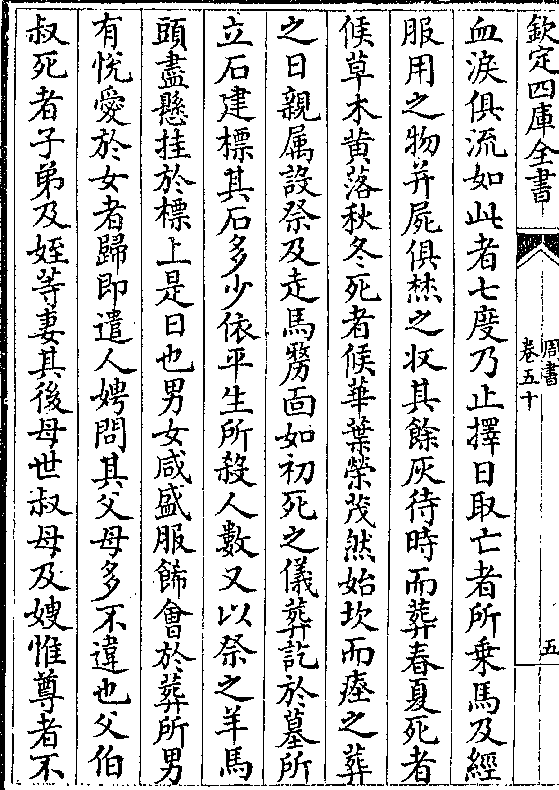 欽定四庫全書
周書
卷五十
五
血淚俱流如此者七度乃止擇日取亡者所乗馬及經
服用之物并屍俱焚之収其餘灰待時而葬春夏死者
候草木黄落秋冬死者候華葉榮茂然始坎而瘞之葬
之日親属設祭及走馬剺面如初死之儀葬訖於墓所
立石建標其石多少依平生所殺人數又以祭之羊馬
頭盡懸挂於標上是日也男女咸盛服飾會於葬所男
有恱愛於女者歸即遣人娉問其父母多不違也父伯
叔死者子弟及姪等妻其後母世叔母及嫂惟尊者不